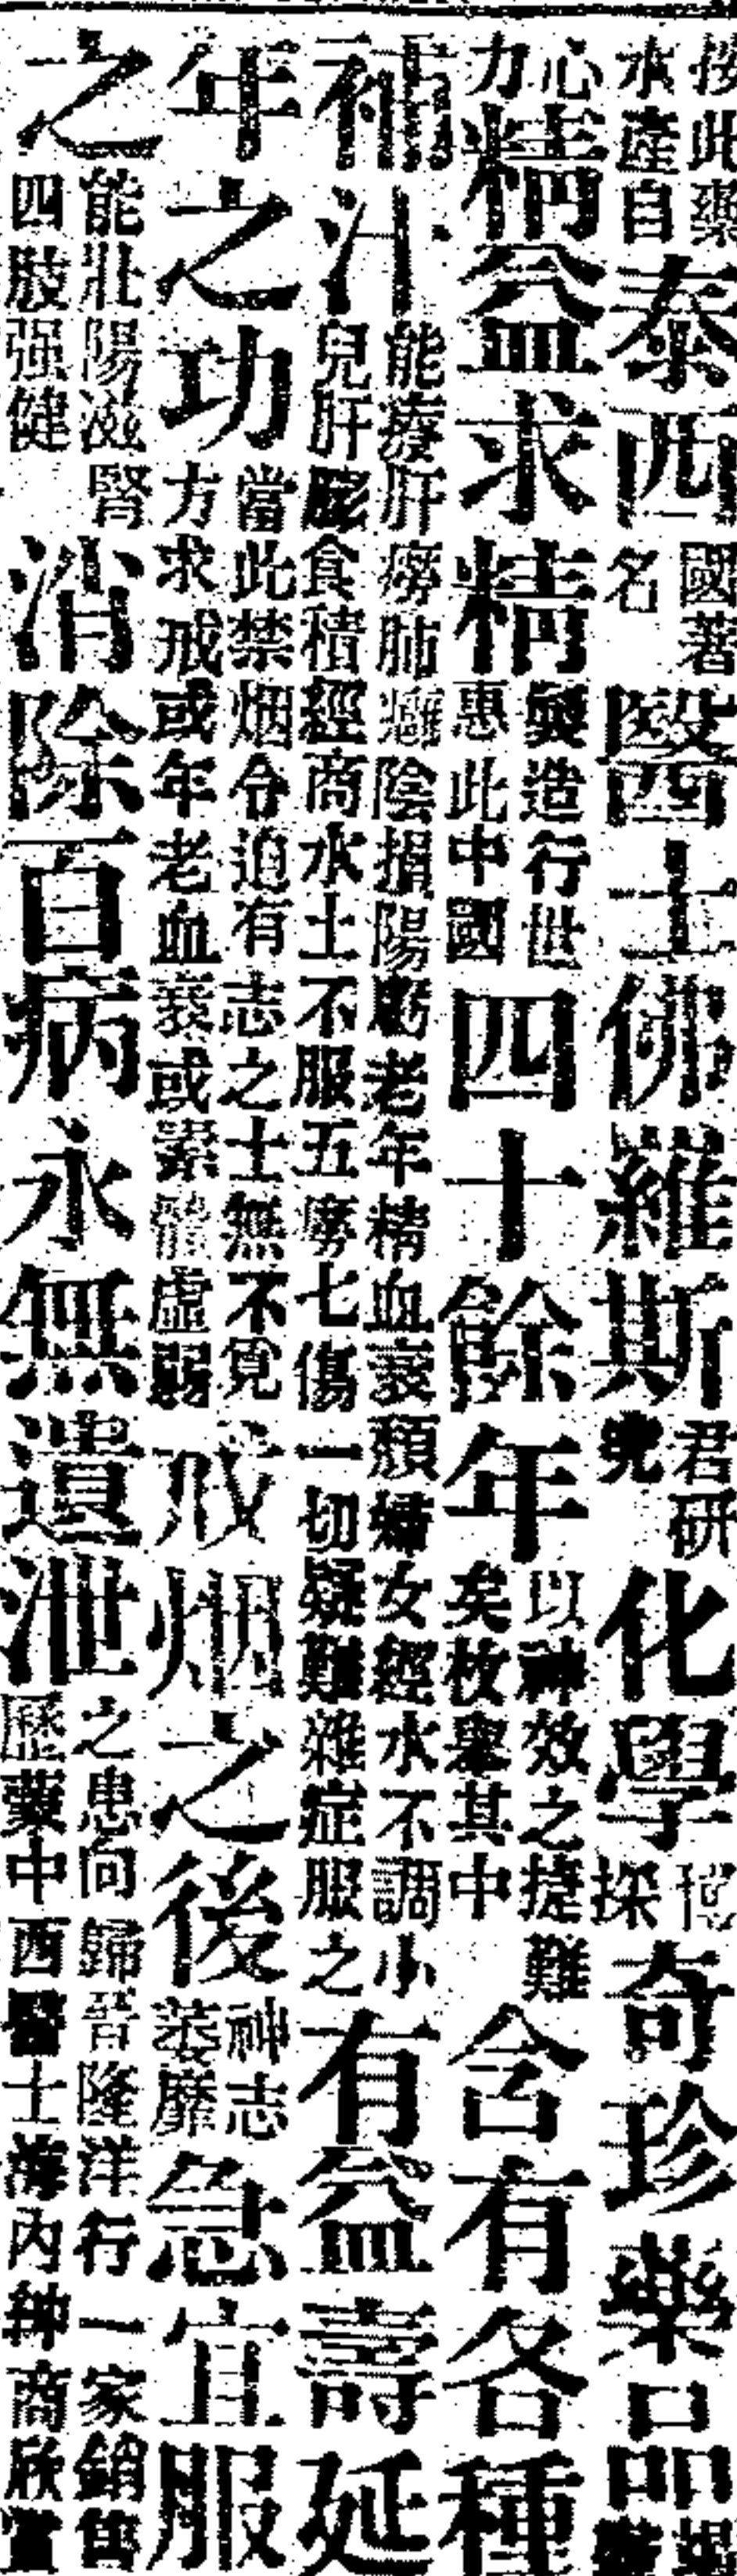 按此藥水產自泰西國著名醫士佛羅斯君研究化學博探奇珍藥品竭
心力精益求精製造行世惠此中國四十餘年以神效之捷難矣枚舉其中含有各種
補汁能療肝癆肺癰陰損陽虧老年精血衰頹婦女經水不調小兒肝膨食積經商水土不服五癆七傷一切疑難雜症服之有益壽延
年之功當此禁烟令迫有志之士無不覓方求戒或年老血衰或素體虛弱戒烟之後神志萎靡急宜服
之能壯陽滋腎四肢强健消除百病永無遺泄之患向歸晋隆洋行一家銷售歷蒙中西醫士海內紳商欣賞